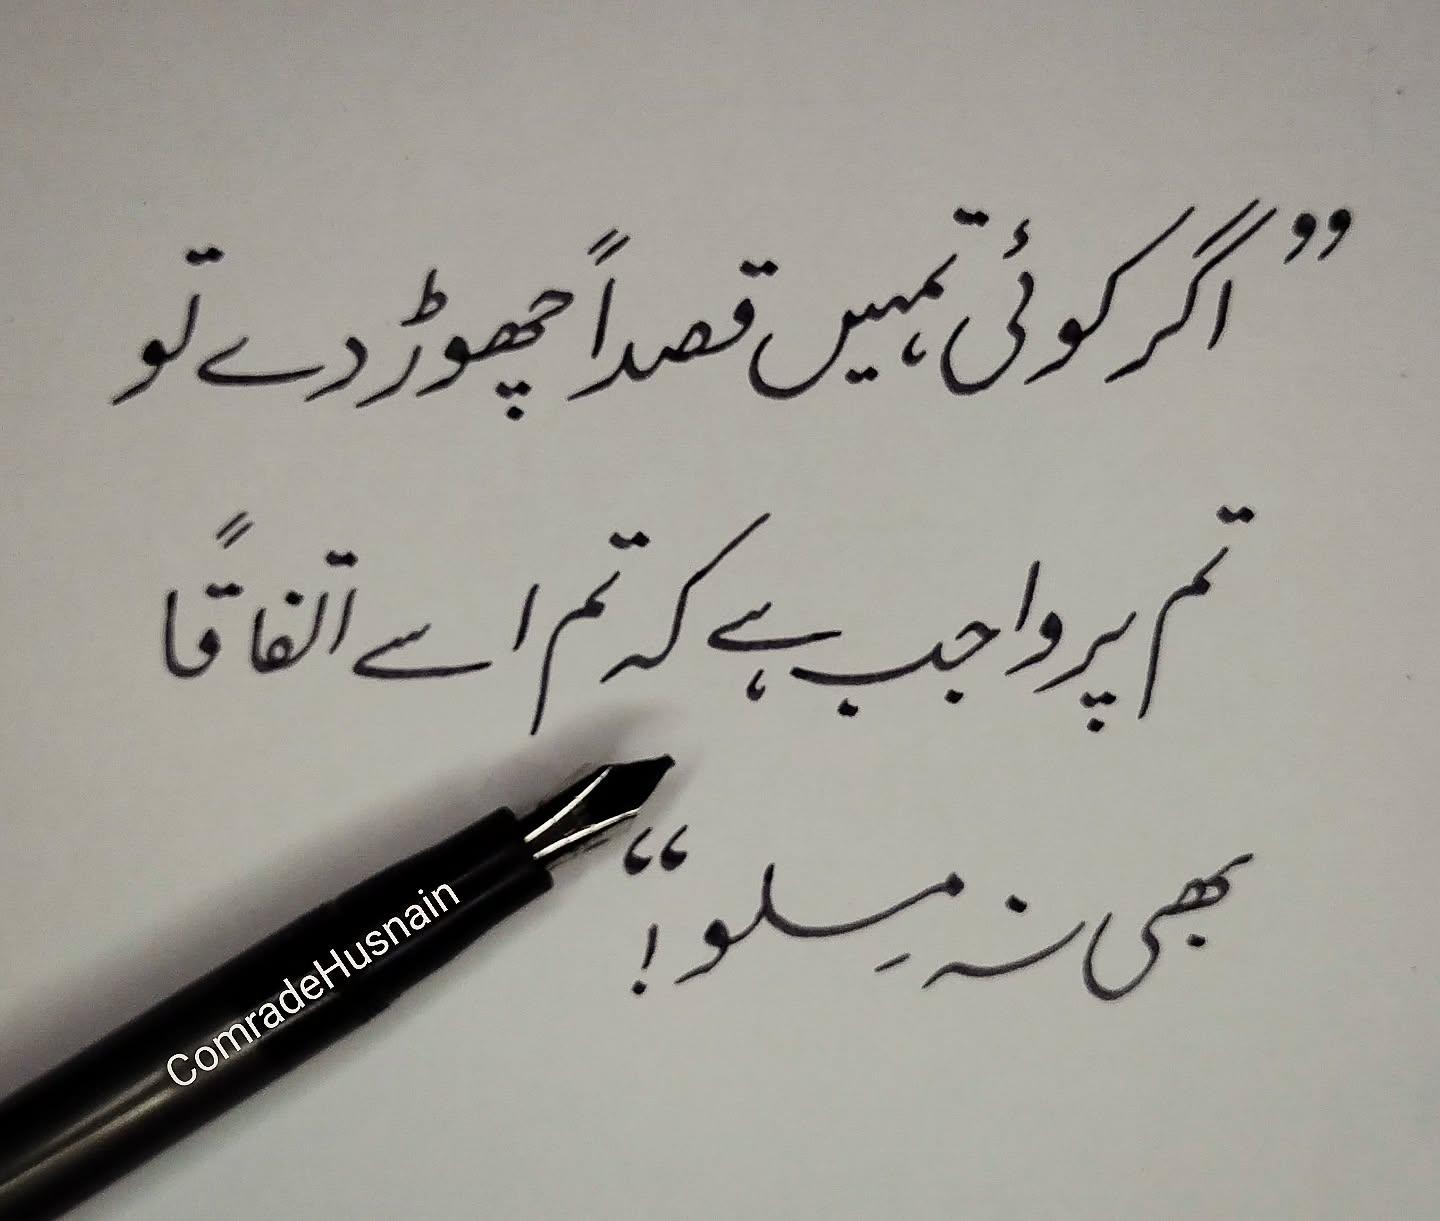 ”اگر کوئی تمہیں قصداً چھوڑ دے تو
تم پر واجب ہے کہ تم اسے اتفاقاً
بھی نہ مِلو!“
ComradeHusnain